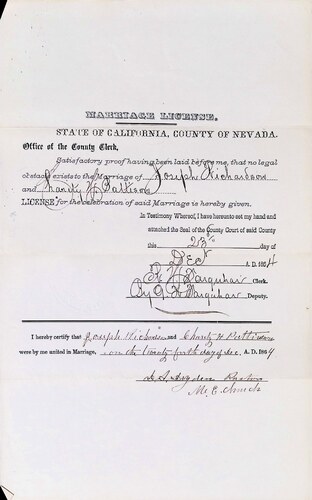 MARRIAGE LICENSE.
STATE OF CALIFORNIA, COUNTY OF NEVADA.
Office of the County Clerk,
Satisfactory proof having been laid before me, that no legal
obstacle exists to the Marriage of Joseph Richardson
and Charity H Pattison
LICENSE for the celebration of said Marriage is hereby given.
In Testimony Whereof, I have hereunto set my hand and
affixed the Seal of the County Court of said County
this 23d day of
Dec A. D. 1864
Clerk.
By Deputy.
I hereby certify that Joseph Richardson and Charity H Pattison
were by me united in Marriage, on the twenty forth day of Dec. A. D. 1864
Pastor
M. E. Church